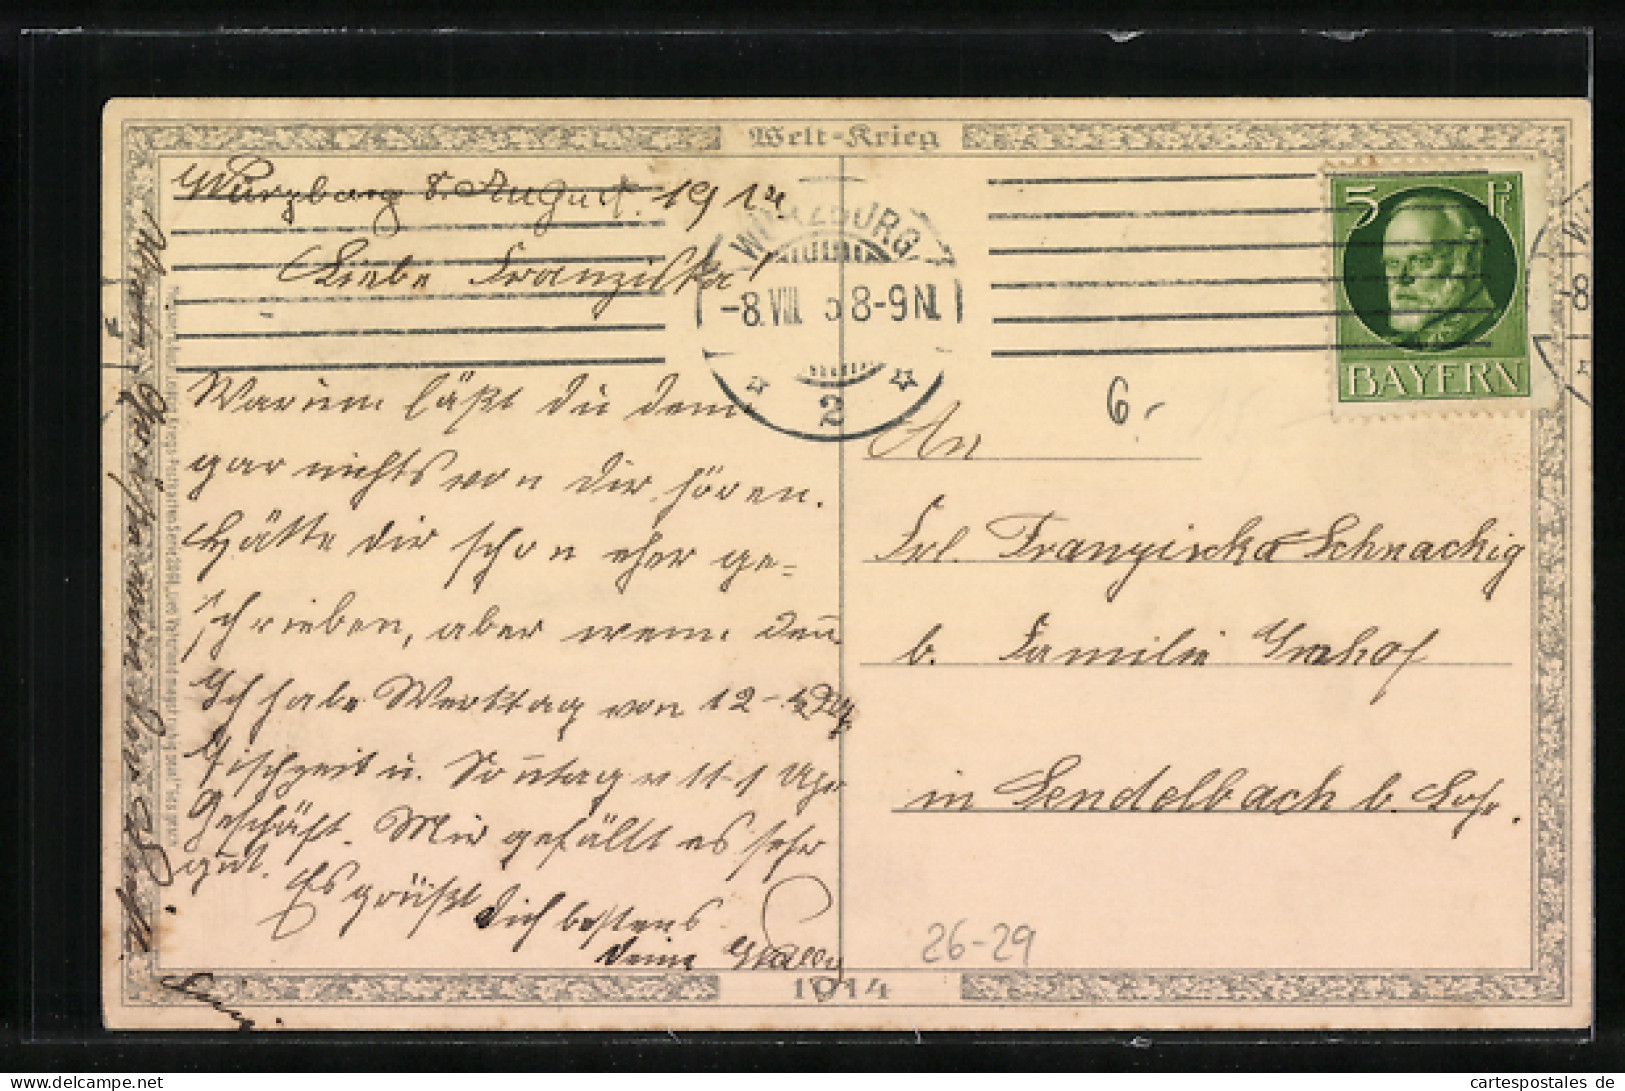 Welt-Krieg
Würzburg 8. August. 1914
Liebe Franziska!
Warum läßt du denn
gar nichts von dir hören.
Hätte dir schon eher ge=
schrieben, aber wenn denn
Ich habe Werktag von 12-
Tischzeit u. Sonntag v 11-1 Uhr
Geschäft. Mir gefällt es sehr
gut.
Es grüßt
dich bestens
deine Wally
1914
WÜRZBURG
-8.VIII 8-9 N.
2
5 Pf
BAYERN
6.-
An
Frl. Franziska Schnackig
b. Familie Imhof
in Sendelbach b. Lohr.
26-29
cartespostales de